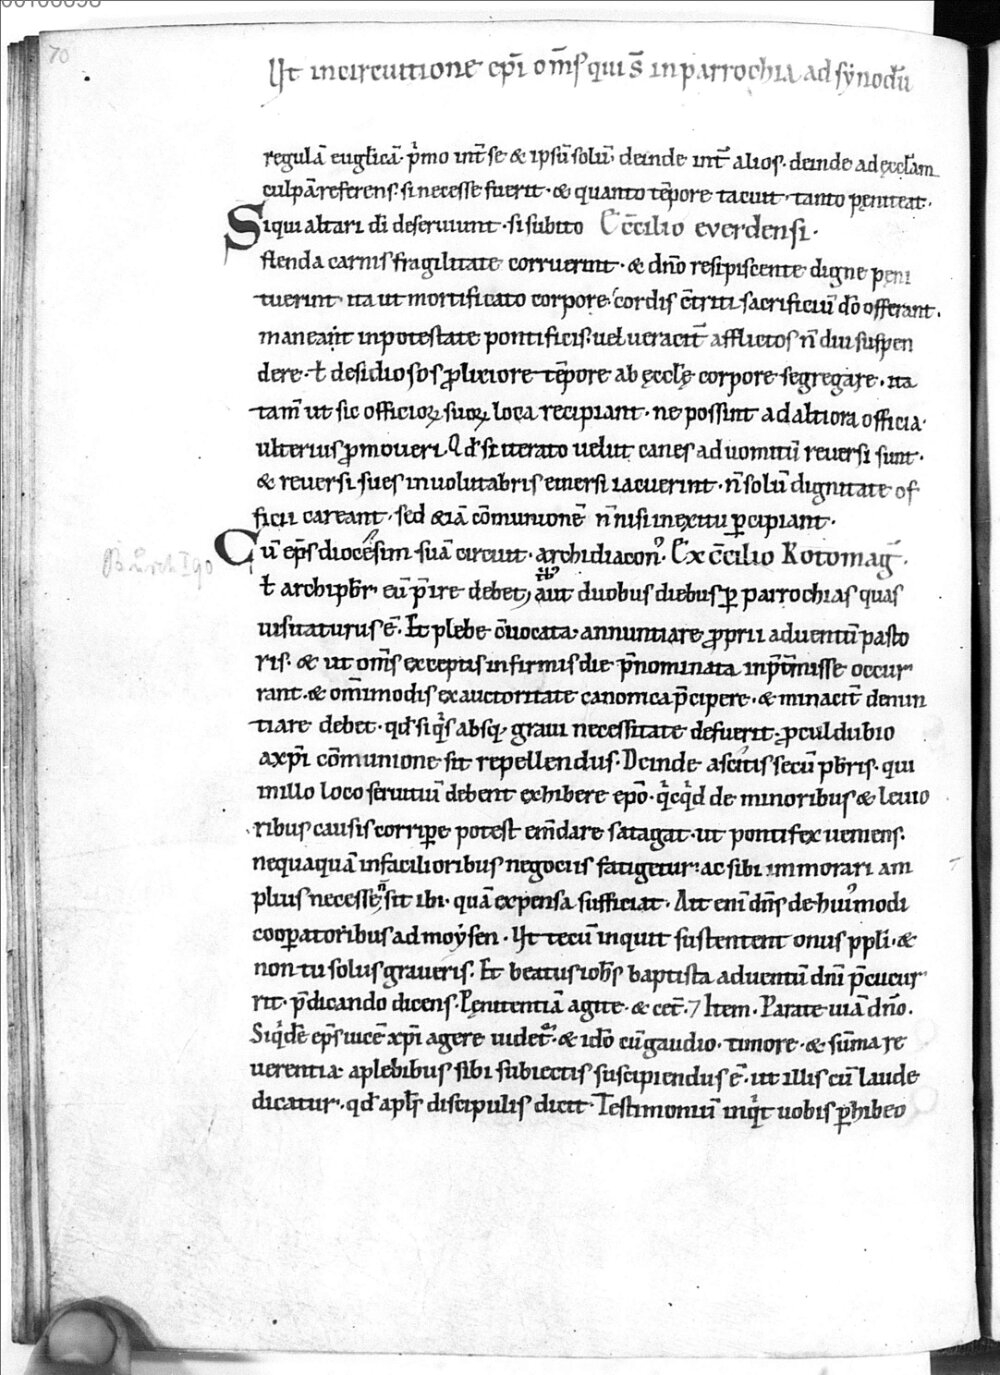 70
Ut incircuitione ep̄i om̄s qui s̄ inparrochia ad synodū
regulā euglicā· p̓mo int̄ se & ipsū solū· deinde int̄ alios· deinde ad ęccłam
culpā referens· si necesse fuerit· & quanto tēpore tacuit· tanto pęniteat·
Siqui altari dī deseruiunt· si subito Cc̄cilio everdensi·
flenda carnis fragilitate corruerint· & dn̄o respiscente digne peni
tuerint· ita ut mortificato corpore· cordis c̄triti sacrificiū do offerant·
maneant inpotestate pontificis· uel ueracit̄ afflictos n̄ diu suspen
dere· ł desidiosos ꝓlixiore tēpore ab ęccłę corpore segregare· ita
tam̄ ut sic officioꝝ suoꝝ loca recipiant· ne possint ad altiora officia·
ulterius ꝓmoueri· Qđ si iterato uelut canes ad uomitū reuersi sunt·
& reuersi sues inuolutabris emersi iacuerint· n̄ solū dignitate of
ficii careant· sed &iā cōmunionē n̄ nisi inexitu ꝑcipiant·
Cū ep̄s diocesim suā circuit· archidiacon᾽ Ex c̄cilio Rotomaḡ·
ł archipbr̄ eū p̄ire debet, aut duobus diebus ꝑ parrochias quas
uisitaturus ē· Et plebe c̄uocata· annuntiare ꝓprii aduentū pasto
ris· & ut om̄s exceptis infirmis die p̄nominata inp̄t̄misse occur
rant· & om̄imodis ex auctoritate canonica p̄cipere· & minacit̄ denun
tiare debet· qđ siq̓s absq; graui necessitate defuerit· ꝓculdubio
axp̄i cōmunione sit repellendus· Deinde ascitis secū pbr̄is· qui
millo loco seruitiū debent exhibere ep̄o· q̓cq̓d de minoribus & leuio
ribus causis corripe potest em̄dare satagat· ut pontifex ueniens·
nequaquā infacilioribus negociis fatigetur· ac sibi immorari am
plius necesse n̄ sit ibi· quā expensa sufficiat· Ait eni dn̄s de hui᾽modi
cooꝑatoribus ad moysen· Ut tecū inquit sustentent onus ppłi· &
non tu solus graueris· Et beatus ioh̄s baptista aduentū dn̄i p̄cucur
rit· p̄dicando dicens· Pęnitentiā agite· & cet̄· ⁊ Item· Parate uiā dn̄o·
Siq̓dē ep̄s uicē xp̄i agere uidet᾽· & id̄o cū gaudio· timore· & sūma re
uerentia· aplebibus sibi subiectis suscipiendus ē· ut illis cū laude
dicatur· qđ apłs discipulis dicit· Testimoniū inq̓t uobis ꝑhibeo